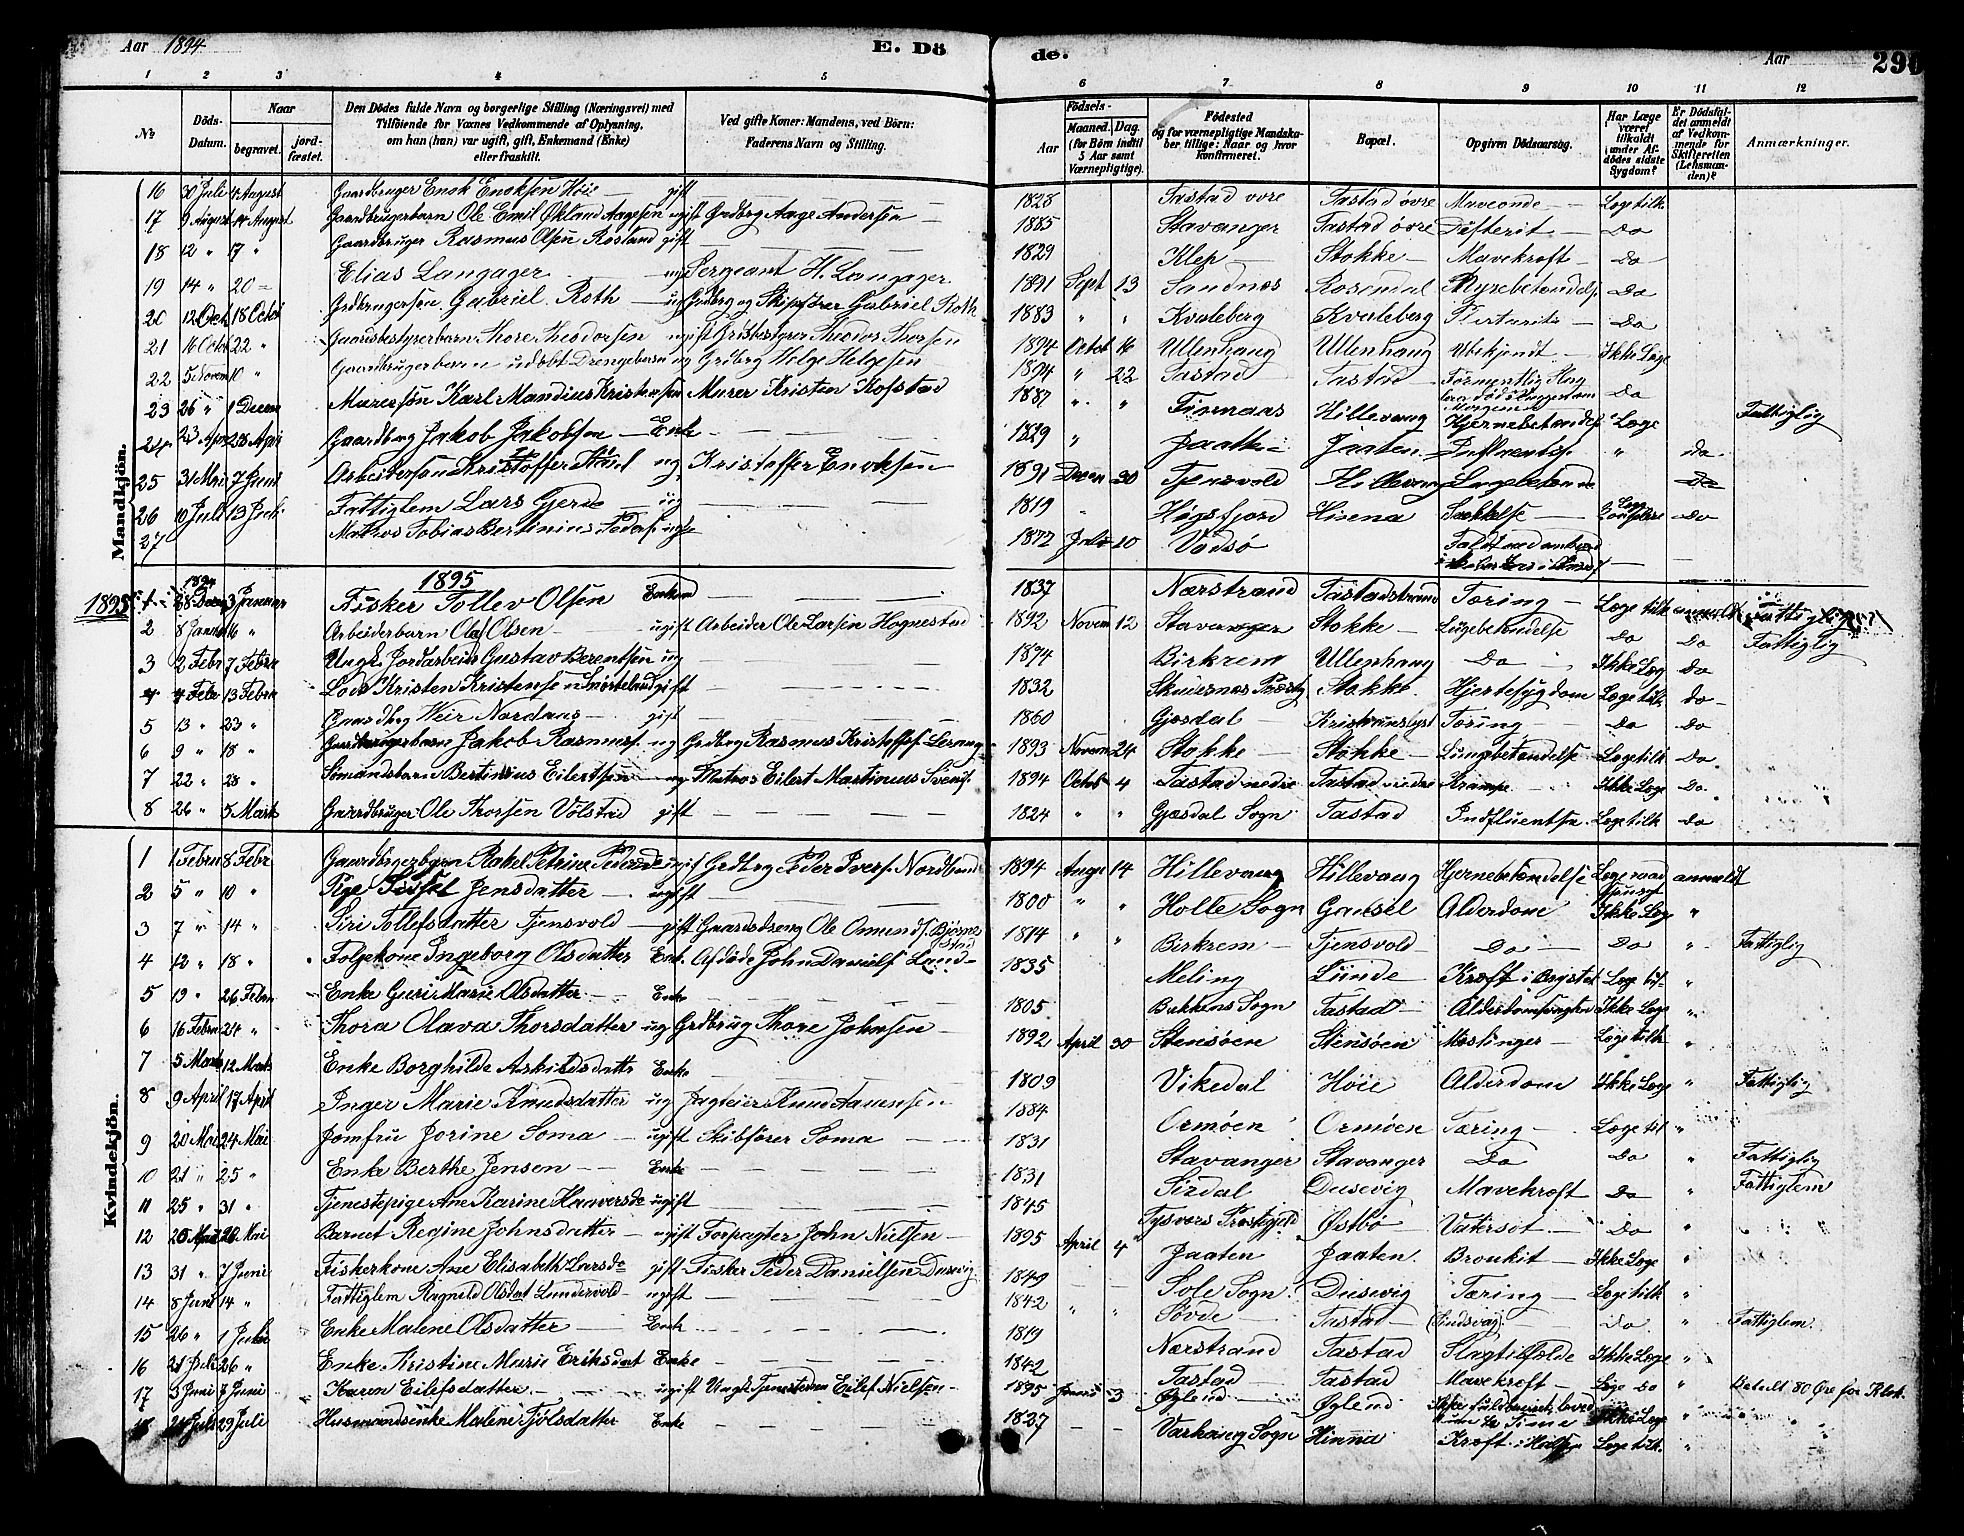 Aar 1894
E. Dö
de.
Aar
290
1 2 3 4 5
6 7 8 9 10 11 12
No
Döds-Datum.
Naar
begravet.
jord-fæstet.
Den Dödes fulde Navn og borgerlige Stilling (Næringsvei) med
Tilföiende for Voxnes Vedkommende af Oplysning,
om han (hun) var ugift, gift, Enkemand (Enke)
eller fraskilt.
Ved gifte Koner: Mandens, ved Börn:
Faderens Navn og Stilling.
Födsels-
Aar
Maaned. Dag.
(for Börn indtil
5 Aar samt
Værnepligtige).
Födested
og for værnepligtige Mandska-
ber tillige: Naar og hvor
konfirmeret.
Bopæl.
Opgiven Dödsaarsag.
Har Læge
været
tilkaldt
under Af-
dödes sidste
Sygdom?
Er Dödsfal-
det anmeldt
af Vedkom-
mende for
Skifteretten
(Lensman-
den)?
Anmærkninger.
Mandkjön.
16 30 Juli 4 August Gaardbruger Enok Enoksen Höie — gift — 1828 Tastad ovre Tastad övre Maveonde — Læge tilk
17 9 August 14 August Gaardbrugerbarn Ole Emil Økland Aagesen ugift Grdbrg Aage Andersen 1885 Stavanger Tastad övre Difterit — Do
18 12 " 17 " Gaardbruger Rasmus Olsen Rostand gift — 1829 Klep — Stokke — Mavekræft — Do
19 14 " 20 Elias Langager ug Sergeant H. Langager 1891 Sept 13 Sandnes Rosendal Do
20 12 Oct 18 Octob Grdbrugersön Gabriel Roth — ug Grdbrg og Skipsförer Gabriel Roth 1883 " " Kvaleberg Kvaleberg Do
21 16 Octob 22 " Gaardbestyrerbarn Thore Theodorsen ugift Grdbestyrer Theodor Thorsen 1894 Octob 16 Ullenhaug Ullenhaug Ubekjendt — Ikke Læge
22 5 Novem 10 " Gaardbrugerbarn udöbt Drengebarn ug Grdbrg Helge Helgesen 1894 " 22 Tastad Tastad Do
23 26 " 1 Decem Murersön Karl Mandius Kristensen Murer Kristen Kofstad 1887 " " Hillevaag Hjernebetændelse Læge Fattiglig
24 23 Apr 28 Apri Gaardbrg Jakob Jakobsen — Enk — 1829 " Jaatten Jaaten " do
25 31 Mai 7 Juni Arbeidersön Kristoffer ug Kristoffer Enoksen 1891 Decem 30 Tjensvold Hillevaag Do
26 10 Juli 13 Juli Fattiglem Lars Gjerde — ug — 1819 Högsfjord Hisena Do
27 Matros Tobias Bertinius ugift 1872 Juli 10 Vadsö
1895
1895 1 1894 28 Decm 3 Januar Fisker Tollev Olsen Enkem — 1837 Nærstrand Tastadstrand Tæring — Læge tilk anmeldt Fattiglig
2 8 Janua 16 " Arbeiderbarn Olaf Olsen — ugift Arbeider Ole Larsen Hognestad 1892 Novem 12 Stavanger Stokke — Lugebetændelse Do Do Fattiglig
3 2 Febr 7 Febru Ungk. Jordarbeid Gustav Berentsen ug — 1874 Birkrem Ullenhaug Do — Ikke Læg Do
4 4 Febr 13 Febru Lods Kristen Kristensen gift — 1832 Skudesnes Præstg Stokke Hjertesygdom Læge tilk do
5 13 " 23 " Gaardbrg Weir Nordaas — gift — 1860 Gjesdal — Kristianslyst Tæring — Do Do
6 9 " 18 " Gaardbrugerbarn Jakob Rasmus. ug Grdbrg Rasmus Kristoffsf. 1893 Novem 24 Stokke — Stokke — Lungebetændelse Læge tilk Do
7 22 " 28 " Sömandsbarn Bertinius Eilertsen ug Matros Eilert Martinius Svends 1894 Octob 4 Tastad nedre Tastad nedre Krampe Ikke Læge Do
8 26 " 5 Marts Gaardbruger Ole Thorsen Völstad gift — 1824 " " Gjesdal Sogn Tastad Indfluentsa Læge tilk Do
Kvindekjön.
1 1 Febru 8 Febr Gaardbrgerbarn Rakel Petrine Pedersd ugift Grdbrg Peder Ivers. Nordbund 1894 Augu 14 Hillevaag Hillevaag Hjernebetændelse anmeldt
2 5 " 10 " Pige Sissel Jensdatter — ugift — 1800 " " Holle Sogn Gausel Alderdom Ikke Læge "
3 7 " 14 " Siri Tollefsdatter Tjensvold — gift Gaardsdreng Ole Omunds. Björnestad 1814 " " Birkrem — Tjensvold — Do — Do " Fattiglig
4 12 " 18 " Folgekone Ingeborg Olsdatter Enk. Afdöde John Daniels Lund — 1835 Meling Lunde — Kræft i Brystet Læge til "
5 19 " 26 Febru Enke Guri Marie Olsdatter — Enke — 1805 Bakkens Sogn Tastad — Alderdomsvaghed Ikke Læge "
6 16 Febru 24 " Thora Olava Thorsdatter ug Grdbrug Thore Johnsen — 1892 April 30 Stensöen Stensöen Meslinger — Læge tilk "
7 5 Marts 12 Marts Enke Borghilde Askildsdattr Enke — 1809 Vikedal Höie Alderdom Ikke Læge " Fattiglig
8 9 April 17 April Inger Marie Knudsdatter ug Jagteier Knud Aanensen 1884 Ormöen Ormöen Tæring — Læge til "
9 20 Mai 24 Mai Jomfru Jorine Soma — ugift Skibförer Soma — 1831 Stavanger Stavanger Do Do " Fattiglig
10 21 " 25 " Enke Berthe Jensen — Enke — 1831 Sirdal Dusevig Mavekræft Do " Fattiglem
11 25 " 31 " Tjenestepige Ane Karine Haaversda ugift — 1845 Tysvers Præstegjeld Østbö Vatersot — Do "
12 20 Mai 26 Mai Barnet Regine Johnsdatter — ugift Forpagter John Nielsen — 1895 April 4 Jaaten Jaaten Bronkit — Ikke Læge "
13 31 " 7 Juni Fiskerkone Ane Elisabeth Larsda gift Fisker Peder Danielsen Dusevig 1849 Sole Sogn Dusevig Tæring — Læge tilk "
14 8 Juni 14 " Fattiglem Ragnild Olsdat Lundervold — ugift — 1842 " " Sövde — Tastad — (Sindsvag) Do " Fattiglem
15 26 " 1 Juli Enke Malene Olsdatter — Enk — 1819 Nærstrand Tastad Slagtilfælde Ikke Læge "
16 21 Juli 26 " Enke Kristine Marie Eriksdat Enke — 1842 Tastad Tastad Mavekræft — Læge Do "
17 3 Juni 7 Juni Karen Eilefsdatter — ugift Ungk Tjenestedreng Eilef Nielsen — 1895 3 Øglend — Øglend Ikke Læge " Betalt 80 Øre for Klok.
18 24 Juli 29 Juli Husmandsenke Malene Tjölsdatter Enke — 1827 — Varhaug Sogn Hinna Kræft i Halsen Læge tilk. "